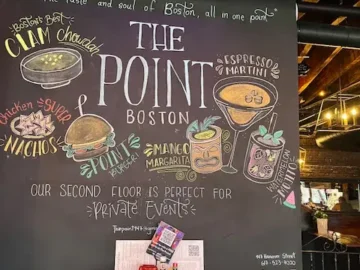 "the taste and soul of Boston, all in one point"
Boston's Best
CLAM Chowdah
THE
POINT
BOSTON
ESPRESSO
MARTINI
Chicken SUPER
NACHOS
POINT
BURGER
MANGO
MARGARITA
WATERMELON
MOJITO
OUR SECOND FLOOR IS PERFECT FOR
Private Events
Hanover Street